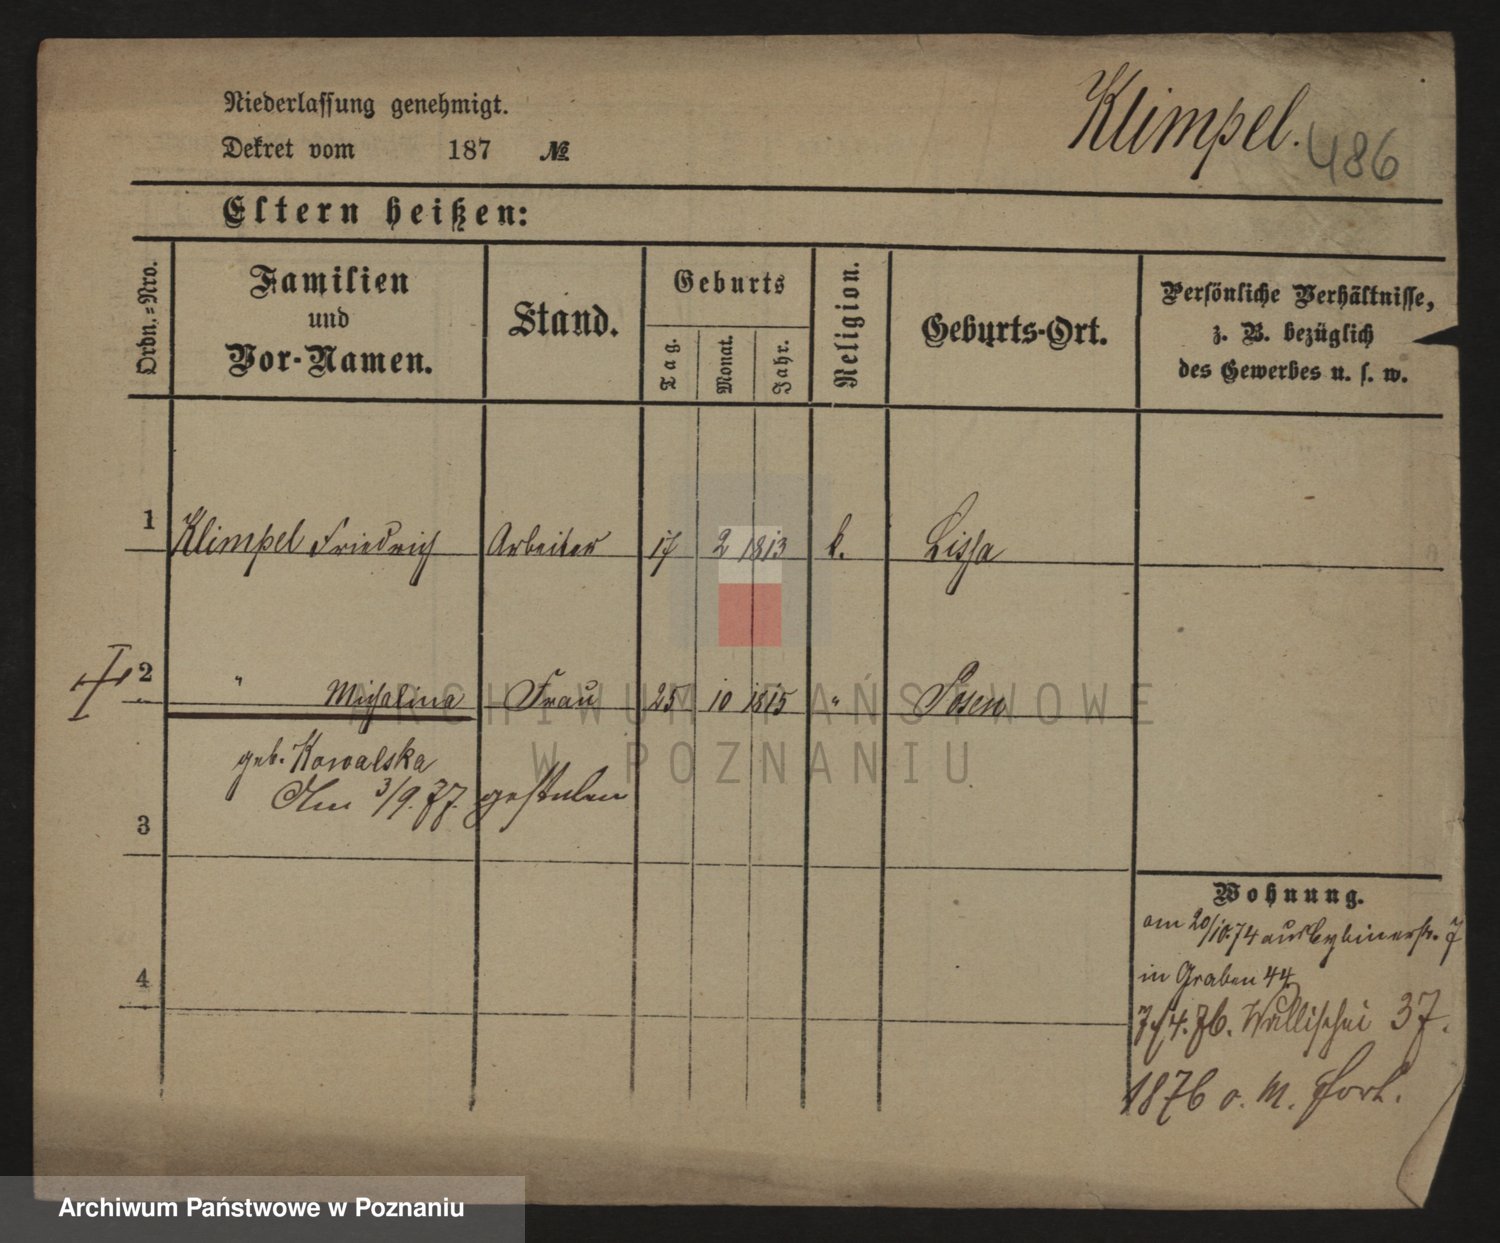 Niederlassung genehmigt.
Klimpel.
486
Dekret vom 187 №
Eltern heißen:
Ordn.=Nro.
Familien
und
Vor-Namen.
Stand.
Geburts
Tag.
Monat.
Jahr.
Religion.
Geburts-Ort.
Persönliche Verhältnisse,
z. B. bezüglich
des Gewerbes u. s. w.
1 Klimpel Friedrich Arbeiter 17 2 1813 k. Lissa
2 " Michalina Frau 25 10 1815 " Posen
geb. Kowalska
Am 3/9. 77 gestorben
3
4
Wohnung.
am 20/10.74 aus 7
in Graben 44
7/4. 76. Wallischei 37.
1876 o. M. fort.
ARCHIWUM PAŃSTWOWE
W POZNANIU
Archiwum Państwowe w Poznaniu